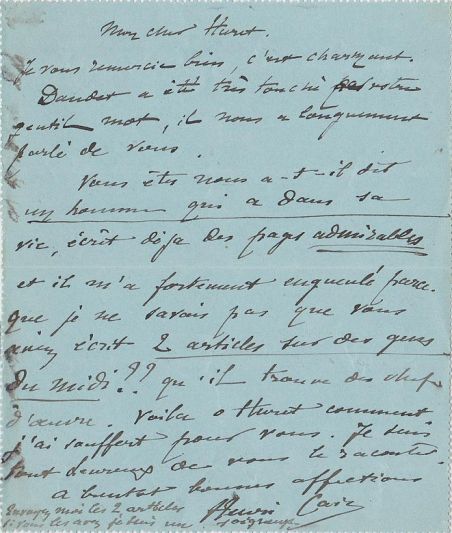 Mon cher Huret
Je vous remercie bien, c'est charmant.
Daudet a été très touché de votre
gentil mot, il nous a longuement
parlé de vous.
Vous êtes nous a-t-il dit
un homme qui a dans sa
vie, écrit déja des pages admirables
et il m'a fortement engueulé parce
que je ne savais pas que vous
aviez écrit 2 articles sur des gens
du midi?? qu'il trouve des chefs
d'œuvre. Voila o Huret comment
j'ai souffert pour vous. Je suis
tout heureux de vous le raconter
a bientot bonnes affections
Henri Cain
Envoyez moi les 2 articles
si vous les avez je suis un soigneux